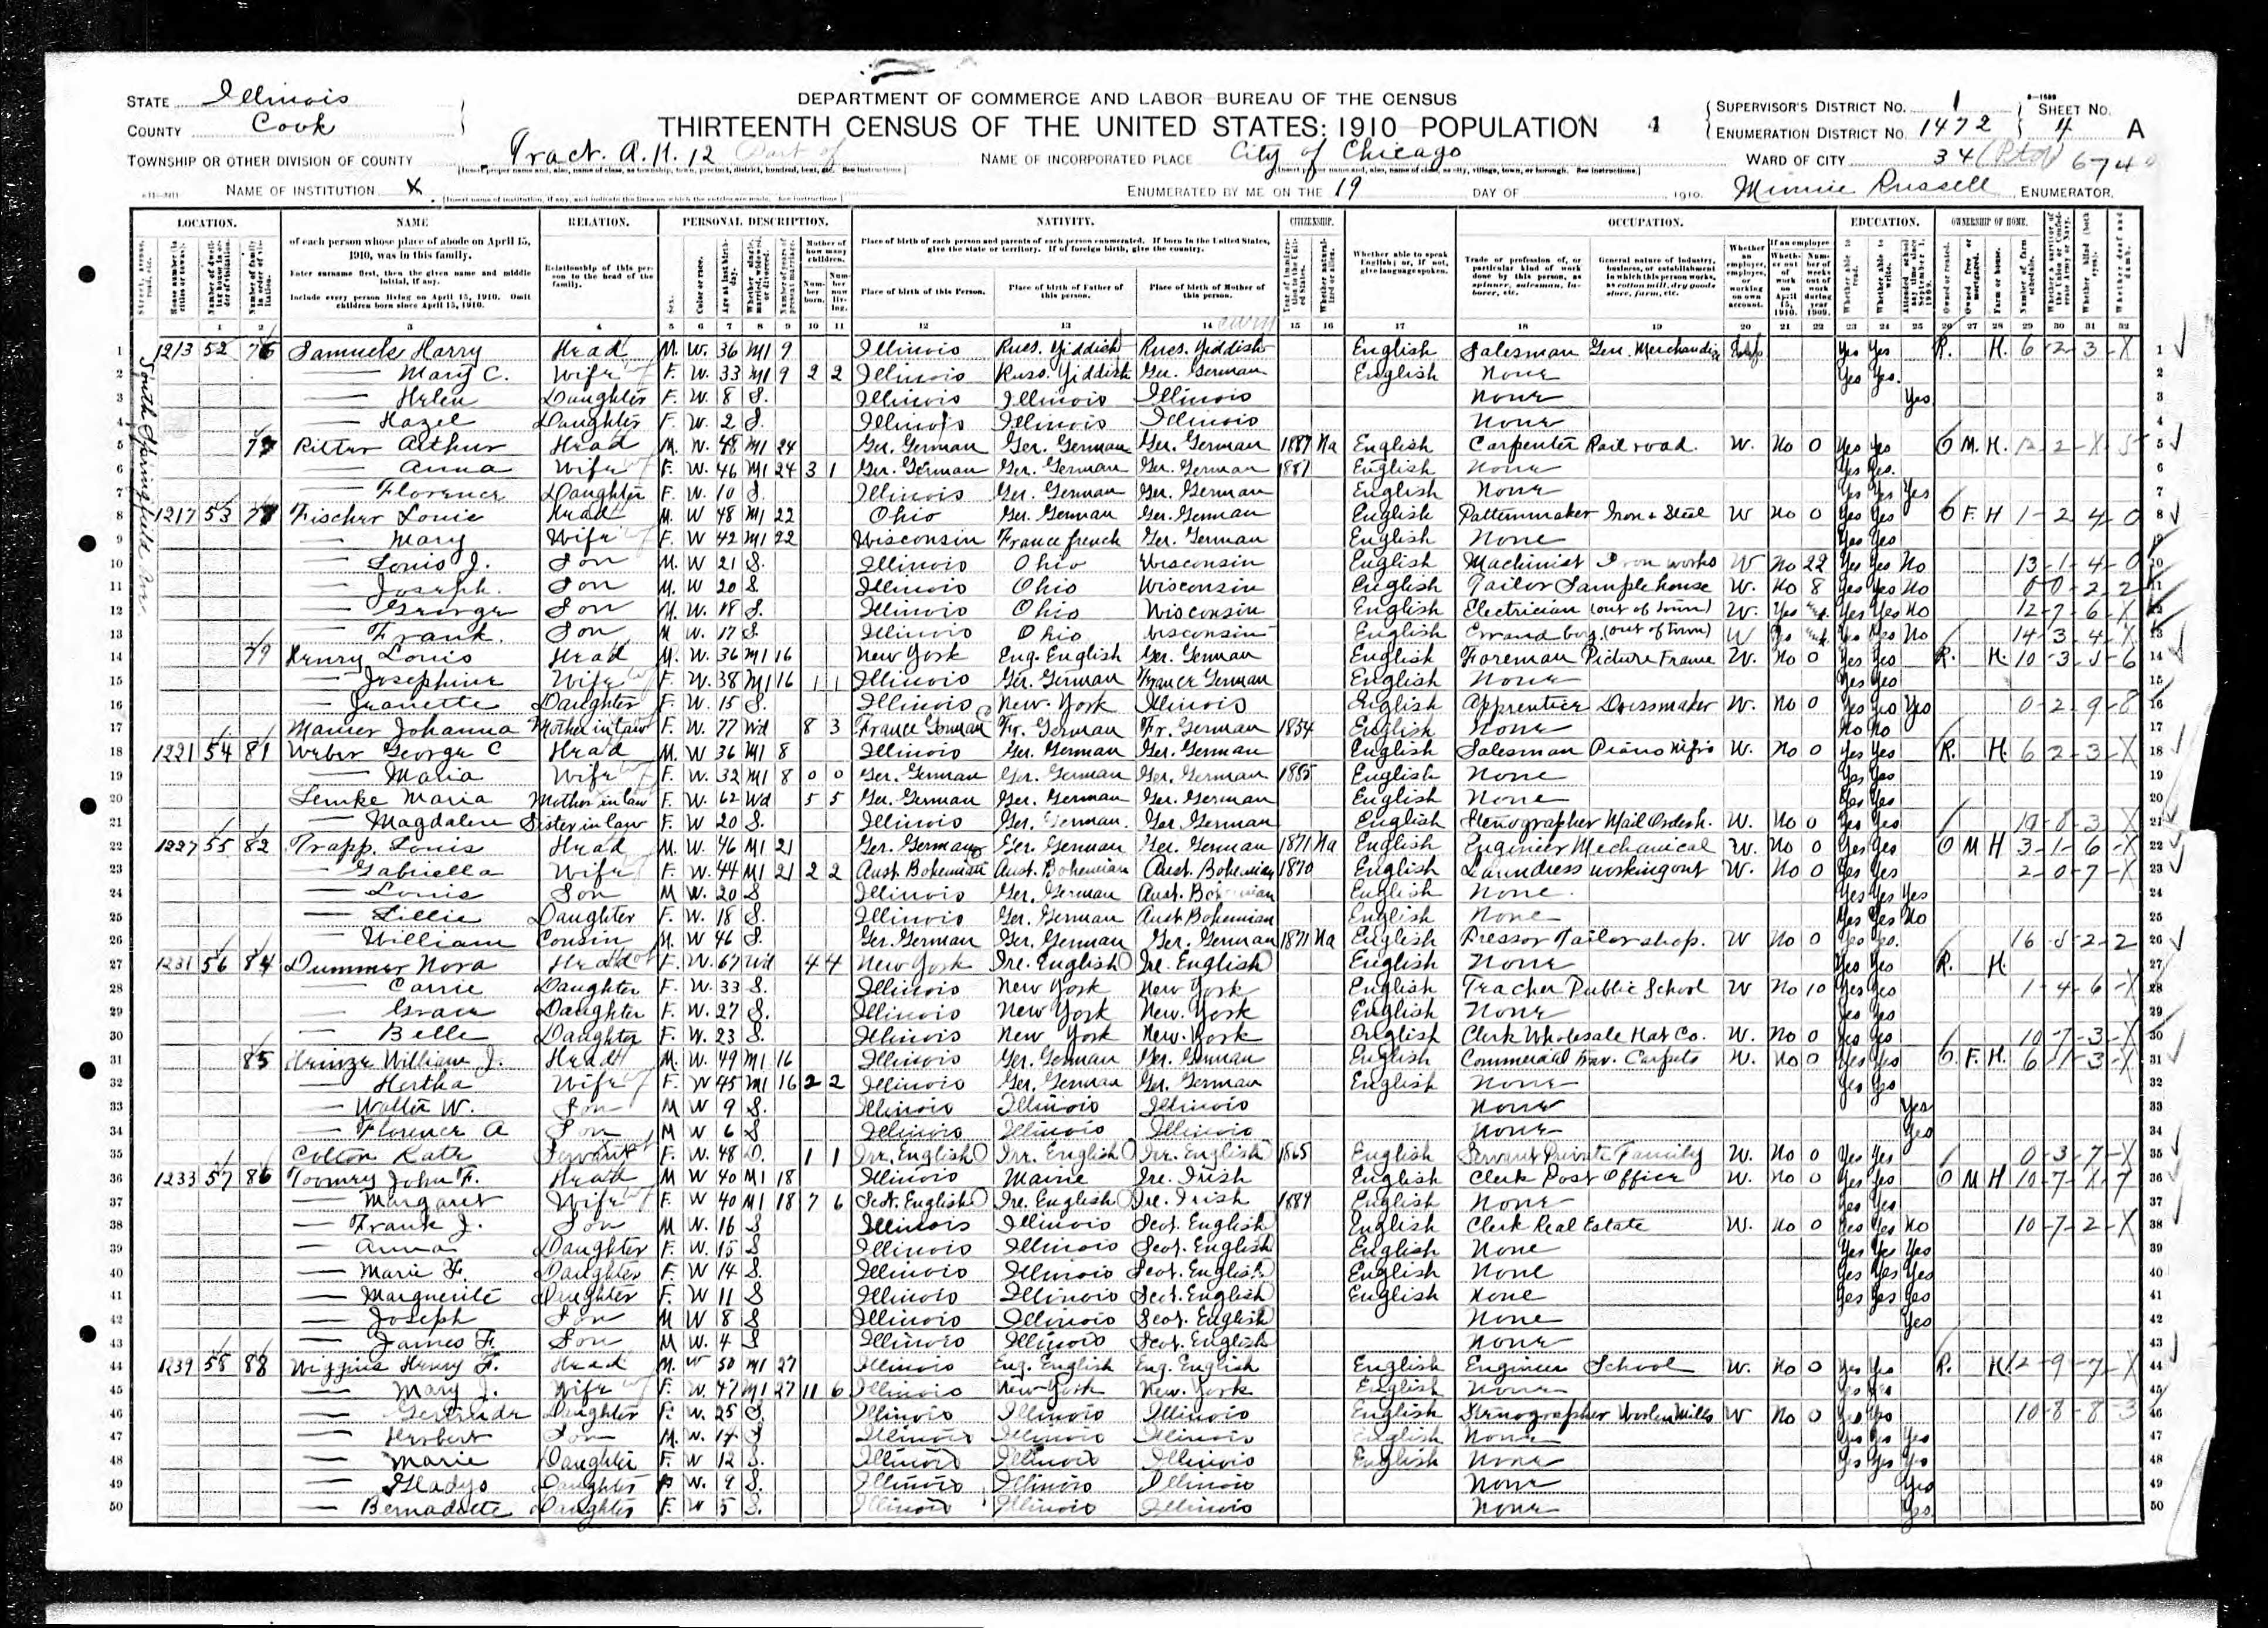 STATE Illinois
COUNTY Cook
DEPARTMENT OF COMMERCE AND LABOR–BUREAU OF THE CENSUS
THIRTEENTH CENSUS OF THE UNITED STATES: 1910–POPULATION
SUPERVISOR'S DISTRICT NO. 1 SHEET NO.
ENUMERATION DISTRICT NO. 1472 4 A
TOWNSHIP OR OTHER DIVISION OF COUNTY Tract. A. H. 12 Part of NAME OF INCORPORATED PLACE City of Chicago WARD OF CITY 34
NAME OF INSTITUTION X ENUMERATED BY ME ON THE 19 DAY OF 1910. Minnie Russell, ENUMERATOR.
LOCATION. NAME RELATION. PERSONAL DESCRIPTION. NATIVITY. CITIZENSHIP. OCCUPATION. EDUCATION. OWNERSHIP OF HOME.
of each person whose place of abode on April 15, 1910, was in this family.
Enter surname first, then the given name and middle initial, if any.
Include every person living on April 15, 1910. Omit children born since April 15, 1910.
Relationship of this person to the head of the family.
Place of birth of each person and parents of each person enumerated. If born in the United States, give the state or territory. If of foreign birth, give the country.
Place of birth of this Person. Place of birth of Father of this person. Place of birth of Mother of this person.
Whether able to speak English; or, if not, give language spoken.
South Springfield Ave
1 1213 52 76 Samuels Harry Head M. W. 36 M1 9 Illinois Russ. Yiddish Russ. Yiddish English Salesman Gen. Merchandise Yes Yes R. H. 6-2-3-X 1
2 — Mary C. Wife F. W. 33 M1 9 2 2 Illinois Russ. Yiddish Ger. German English None Yes Yes. 2
3 — Helen Daughter F. W. 8 S. Illinois Illinois Illinois None Yes 3
4 — Hazel Daughter F. W. 2 S. Illinois Illinois Illinois None 4
5 77 Ritter Arthur Head M. W. 48 M1 24 Ger. German Ger. German Ger. German 1887 Na English Carpenter Railroad. W. No 0 Yes Yes O M. H. 12-2-X-5 5
6 — Anna Wife F. W. 46 M1 24 3 1 Ger. German Ger. German Ger. German 1887 English None Yes Yes. 6
7 — Florence Daughter F. W. 10 S. Illinois Ger. German Ger. German English None Yes Yes Yes 7
8 1217 53 78 Fischer Louis Head M. W 48 M1 22 Ohio Ger. German Ger. German English Patternmaker Iron & Steel W No 0 Yes Yes O F. H 1-2-4-0 8
9 — Mary Wife F. W 42 M1 22 Wisconsin France French Ger. German English None Yes Yes 9
10 — Louis J. Son M. W 21 S. Illinois Ohio Wisconsin English Machinist Iron works W No 22 Yes Yes No 13-1-4-0 10
11 — Joseph. Son M. W 20 S Illinois Ohio Wisconsin English Tailor Sample house W. No 8 Yes Yes No 0-0-2-2 11
12 — George Son M. W. 18 S. Illinois Ohio Wisconsin English Electrician (out of town) W. Yes Yes Yes No 12-7-6-X 12
13 — Frank. Son M W. 17 S. Illinois Ohio Wisconsin English Errand boy. (out of town) W Yes Yes Yes No 14-3-4-X 13
14 79 Henry Louis Head M. W. 36 M1 16 New York Eng. English Ger. German English Foreman Picture Frame W. No 0 Yes Yes R. H. 10-3-5-6 14
15 — Josephine Wife F. W. 38 M1 16 1 1 Illinois Ger. German France German English None Yes Yes 15
16 — Jeanette Daughter F. W. 15 S. Illinois New York Illinois English Apprentice Dressmaker W. No 0 Yes Yes Yes 0-2-9-8 16
17 Maurer Johanna Mother in law F. W. 77 Wd 8 3 France German Fr. German Fr. German 1854 English None No No 17
18 1221 54 81 Weber George C Head M. W 36 M1 8 Illinois Ger. German Ger. German English Salesman Piano Mfrs W. No 0 Yes Yes R. H. 6-2-3-X 18
19 — Maria Wife F. W. 32 M1 8 0 0 Ger. German Ger. German Ger. German 1885 English None Yes Yes 19
20 Lemke Maria Mother in law F. W. 62 Wd 5 5 Ger. German Ger. German Ger. German English None Yes Yes 20
21 — Magdalen Sister in law F. W 20 S. Illinois Ger. German. Ger. German English Stenographer Mail Order h. W. No 0 Yes Yes 21
22 1227 55 82 Trapp. Louis Head M. W. 46 M1 21 Ger. German Ger. German Ger. German 1871 Na English Engineer Mechanical W. No 0 Yes Yes O M H 3-1-6-X 22
23 — Gabriella Wife F. W. 44 M1 21 2 2 Aust. Bohemian Aust. Bohemian Aust. Bohemian 1870 English Laundress working out W. No 0 Yes Yes 2-0-7-X 23
24 — Louis Son M W. 20 S Illinois Ger. German Aust. Bohemian English None. Yes Yes Yes 24
25 — Lillie Daughter F. W. 18 S. Illinois Ger. German Aust Bohemian English None Yes Yes No 25
26 — William Cousin M. W 46 S. Ger. German Ger. German Ger. German 1871 Na English Presser Tailor shop. W No 0 Yes Yes. 16-5-2-2 26
27 1231 56 84 Dummer Nora Head F. W. 67 Wd 4 4 New York Ire. English Ire. English English None Yes Yes R. H. 27
28 — Carrie Daughter F. W. 33 S. Illinois New York New York English Teacher Public School W No 10 Yes Yes 1-4-6-X 28
29 — Grace Daughter F. W. 27 S. Illinois New York New York English None Yes Yes 29
30 — Belle Daughter F. W. 23 S. Illinois New York New York English Clerk Wholesale Hat Co. W. No 0 Yes Yes 10-7-3-X 30
31 85 Heinze William J. Head M. W. 49 M1 16 Illinois Ger. German Ger. German English Commercial Trav. Carpets W. No 0 Yes Yes O. F. H. 6-1-3-X 31
32 — Hertha Wife F. W 45 M1 16 2 2 Illinois Ger. German Ger. German English None Yes Yes 32
33 — Walter W. Son M W 9 S. Illinois Illinois Illinois None Yes 33
34 — Florence A Son M W 6 S Illinois Illinois Illinois None Yes 34
35 Colton Kate Servant F. W. 48 D. 1 1 Ire. English Ire. English Ire. English 1865 English Servant Private Family W. No 0 Yes Yes 0-3-7-X 35
36 1233 57 86 Toomey John F. Head M W 40 M1 18 Illinois Maine Ire. Irish English Clerk Post Office W. No 0 Yes Yes O M H 10-7-X-7 36
37 — Margaret Wife F. W 40 M1 18 7 6 Scot. English Ire. English Ire. Irish 1887 English None Yes Yes 37
38 — Frank J. Son M W. 16 S Illinois Illinois Scot. English English Clerk Real Estate W. No 0 Yes Yes No 10-7-2-X 38
39 — Anna Daughter F. W. 15 S Illinois Illinois Scot. English English None Yes Yes Yes 39
40 — Marie F. Daughter F. W 14 S. Illinois Illinois Scot. English English None Yes Yes Yes 40
41 — Marguerite Daughter F. W 11 S Illinois Illinois Scot. English English None Yes Yes Yes 41
42 — Joseph Son M W 8 S Illinois Illinois Scot. English None Yes 42
43 — James F. Son M W. 4 S Illinois Illinois Scot. English None 43
44 1239 58 88 Wiggins Henry F. Head M. W 50 M1 27 Illinois Eng. English Eng. English English Engineer School W. No 0 Yes Yes R. H. 12-9-7-X 44
45 — Mary J. Wife F. W. 47 M1 27 11 6 Illinois New York New York English None Yes Yes 45
46 — Gertrude Daughter F. W. 25 S. Illinois Illinois Illinois English Stenographer Woolen Mills W No 0 Yes Yes 10-8-8-3 46
47 — Herbert Son M. W. 14 S Illinois Illinois Illinois English None Yes Yes Yes 47
48 — Marie Daughter F. W 12 S. Illinois Illinois Illinois English None Yes Yes Yes 48
49 — Gladys Daughter F W. 9 S. Illinois Illinois Illinois None Yes 49
50 — Bernadette Daughter F. W 5 S. Illinois Illinois Illinois None Yes 50